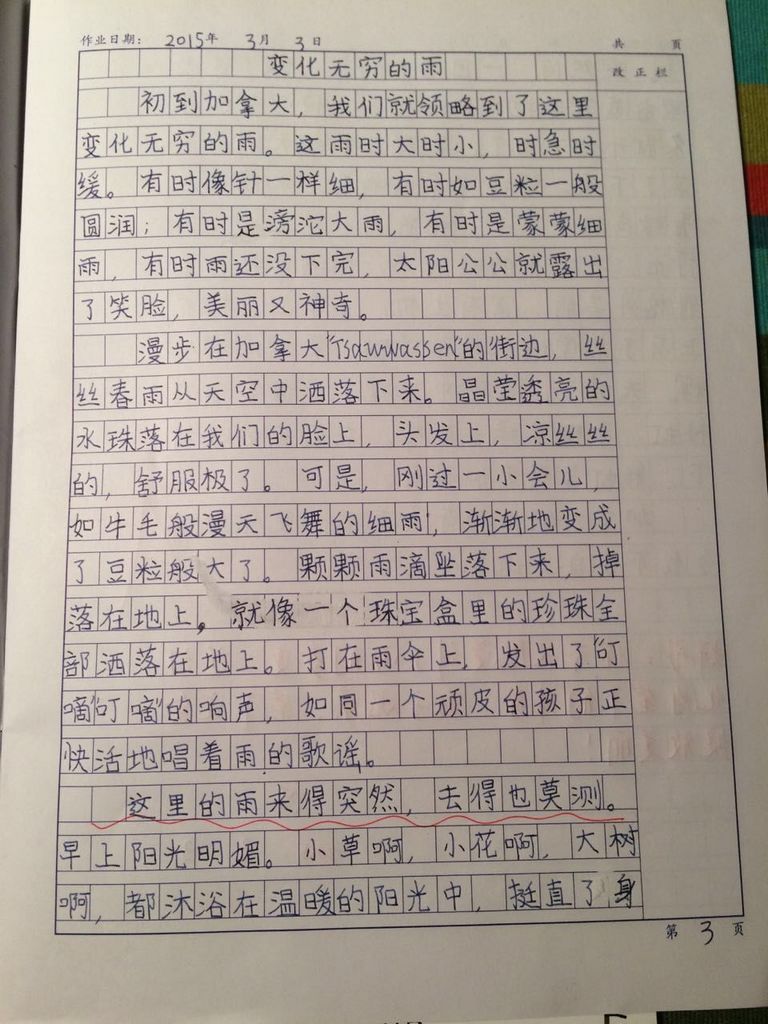 作业日期: 2015年 3月 3日 共 页
变化无穷的雨 改正栏
初到加拿大，我们就领略到了这里
变化无穷的雨。这雨时大时小，时急时
缓。有时像针一样细，有时如豆粒一般
圆润；有时是滂沱大雨，有时是蒙蒙细
雨，有时雨还没下完，太阳公公就露出
了笑脸，美丽又神奇。
漫步在加拿大"Tsawwassen"的街边，丝
丝春雨从天空中洒落下来。晶莹透亮的
水珠落在我们的脸上，头发上，凉丝丝
的，舒服极了。可是，刚过一小会儿，
如牛毛般漫天飞舞的细雨，渐渐地变成
了豆粒般大了。颗颗雨滴坠落下来，掉
落在地上，就像一个珠宝盒里的珍珠全
部洒落在地上。打在雨伞上，发出了"叮
嘀""叮嘀"的响声，如同一个顽皮的孩子正
快活地唱着雨的歌谣。
这里的雨来得突然，去得也莫测。
早上阳光明媚。小草啊，小花啊，大树
啊，都沐浴在温暖的阳光中，挺直了身
第 3 页